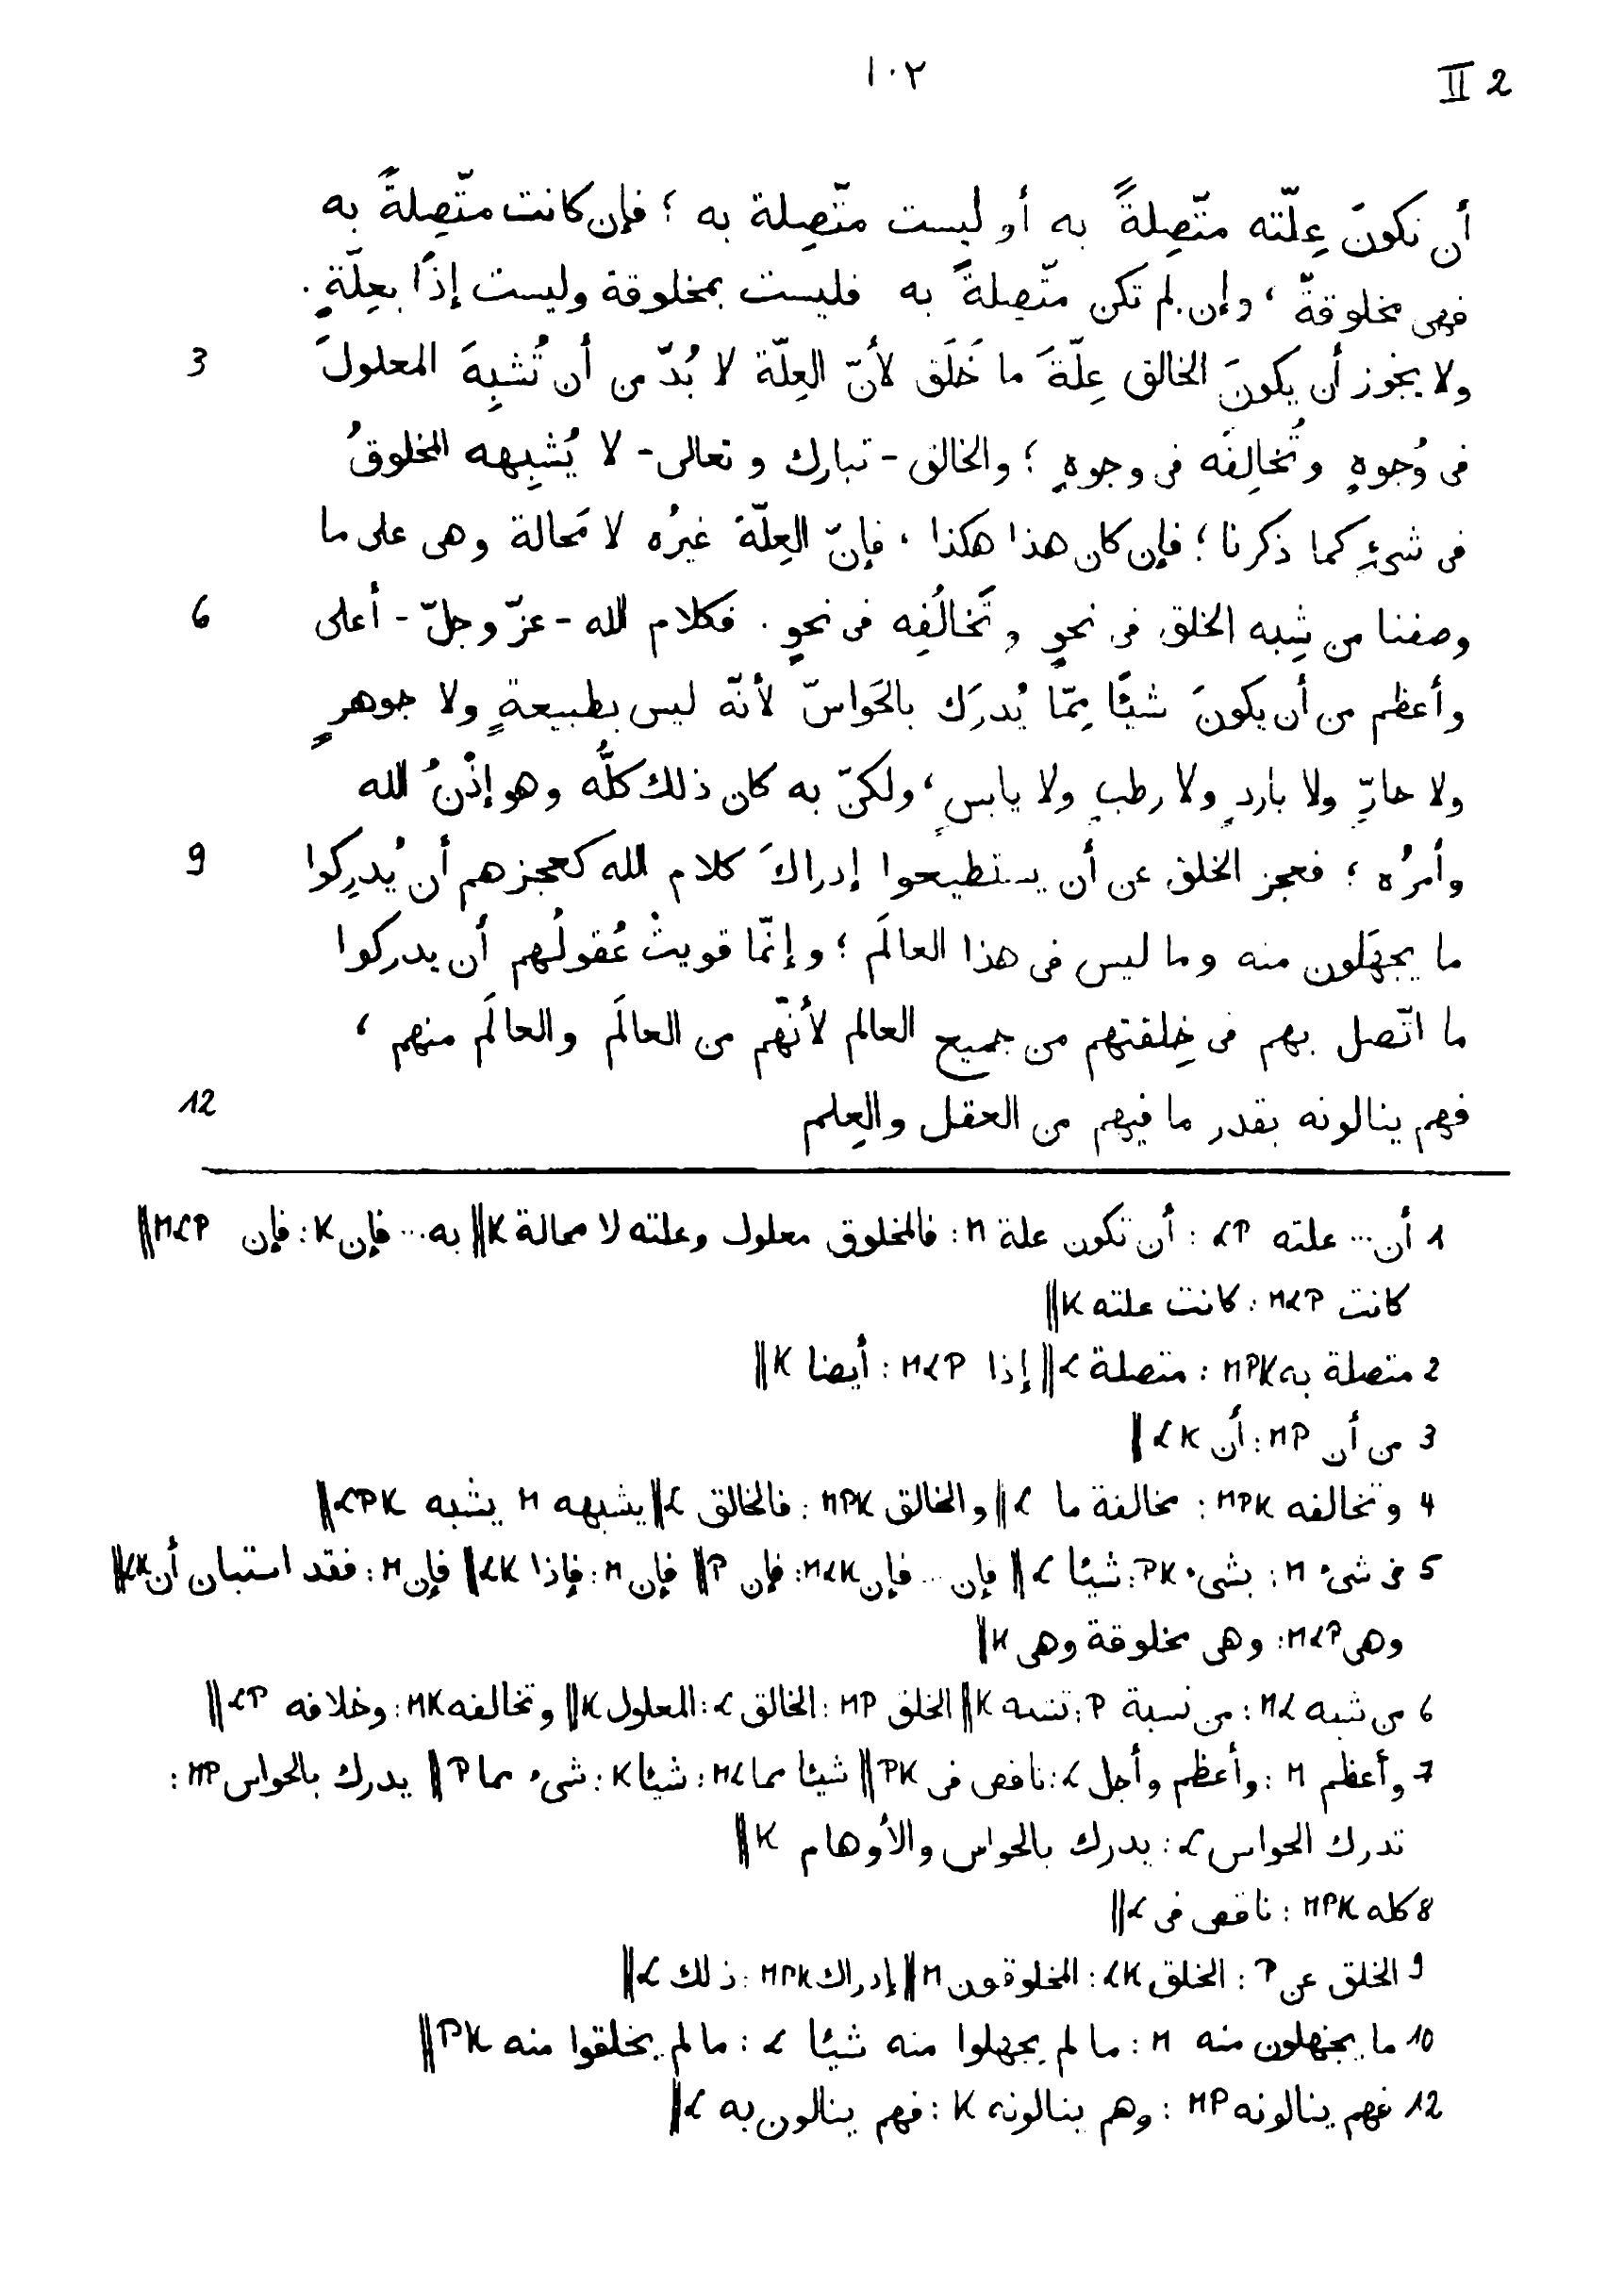 II 2
١٠٢
أن تكونَ عِلّته متّصِلةً به أو ليست متّصِلة به ؛ فإن كانت متّصِلةً به
فهى مخلوقةٌ ، وإن لم تكن متّصِلةً به فليست بمخلوقة وليست إذًا بعِلّةٍ .
ولا يجوز أن يكونَ الخالق عِلّةَ ما خَلَق لأنّ العِلّة لا بُدّ من أن تُشبِهَ المعلولَ 3
فى وُجوهٍ وتُخالِفَه فى وجوهٍ ؛ والخالق - تبارك وتعالى - لا يُشبِهه المخلوقُ
فى شىءٍ كما ذكرنا ؛ فإن كان هذا هكذا ، فإنّ العِلّةَ غيرُه لا مَحالة وهى على ما
وصفنا من شِبه الخلق فى نحوٍ وتَخالُفِه فى نحوٍ . فكلام الله - عزّ وجلّ - أعلى 6
وأعظم من أن يكونَ شيئًا مِمّا يُدرَك بالحَواسّ لأنّه ليس بطبيعةٍ ولا جوهرٍ
ولا حارٍّ ولا باردٍ ولا رطبٍ ولا يابسٍ ، ولكنّ به كان ذلك كلُّه وهو إذْنُ الله
وأمرُه ؛ فعجز الخلق عن أن يستطيعوا إدراكَ كلام الله كعجزهم أن يُدرِكوا 9
ما يجهَلون منه وما ليس فى هذا العالَم ؛ وإنّما قويتْ عُقولُهم أن يدركوا
ما اتّصل بهم فى خِلقتهم من جميع العالم لأنّهم من العالَم والعالَم منهم ،
فهم ينالونه بقدر ما فيهم من العقل والعِلم 12
1 أن ... علته LP : أن تكون علة M : فالمخلوق معلول وعلته لا محالة K || به ... فإن K : فإن MLP ||
كانت MLP : كانت علته K ||
2 متصلة به MPK : متصلة L || إذا MLP : أيضا K ||
3 من أن MP : أن LK ||
4 وتخالفه MPK : مخالفة ما L || والخالق MPK : فالخالق L || يشبهه M يشبه LPK ||
5 فى شىء M : بشىء PK : شيئا L || فإن ... فإن MLK : فإن P || فإن M : فإذا LK || فإن M : فقد استبان أن LK ||
وهى MLP : وهى مخلوقة وهى K ||
6 من شبه ML : من نسبة P : تشبه K || الخلق MP : الخالق L : المعلول K || وتخالفه MK : وخلافه LP ||
7 وأعظم M : وأعظم وأجل L : ناقص فى PK || شيئا مما ML : شيئا K : شىء مما P || يدرك بالحواس MP :
تدرك الحواس L : يدرك بالحواس والأوهام K ||
8 كله MPK : ناقص فى L ||
9 الخلق عن P : الخلق LK : المخلوقون M || إدراك MPK : ذلك L ||
10 ما يجهلون منه M : ما لم يجهلوا منه شيئا L : ما لم يخلقوا منه PK ||
12 فهم ينالونه MP : وهم ينالونه K : فهم ينالون به L ||